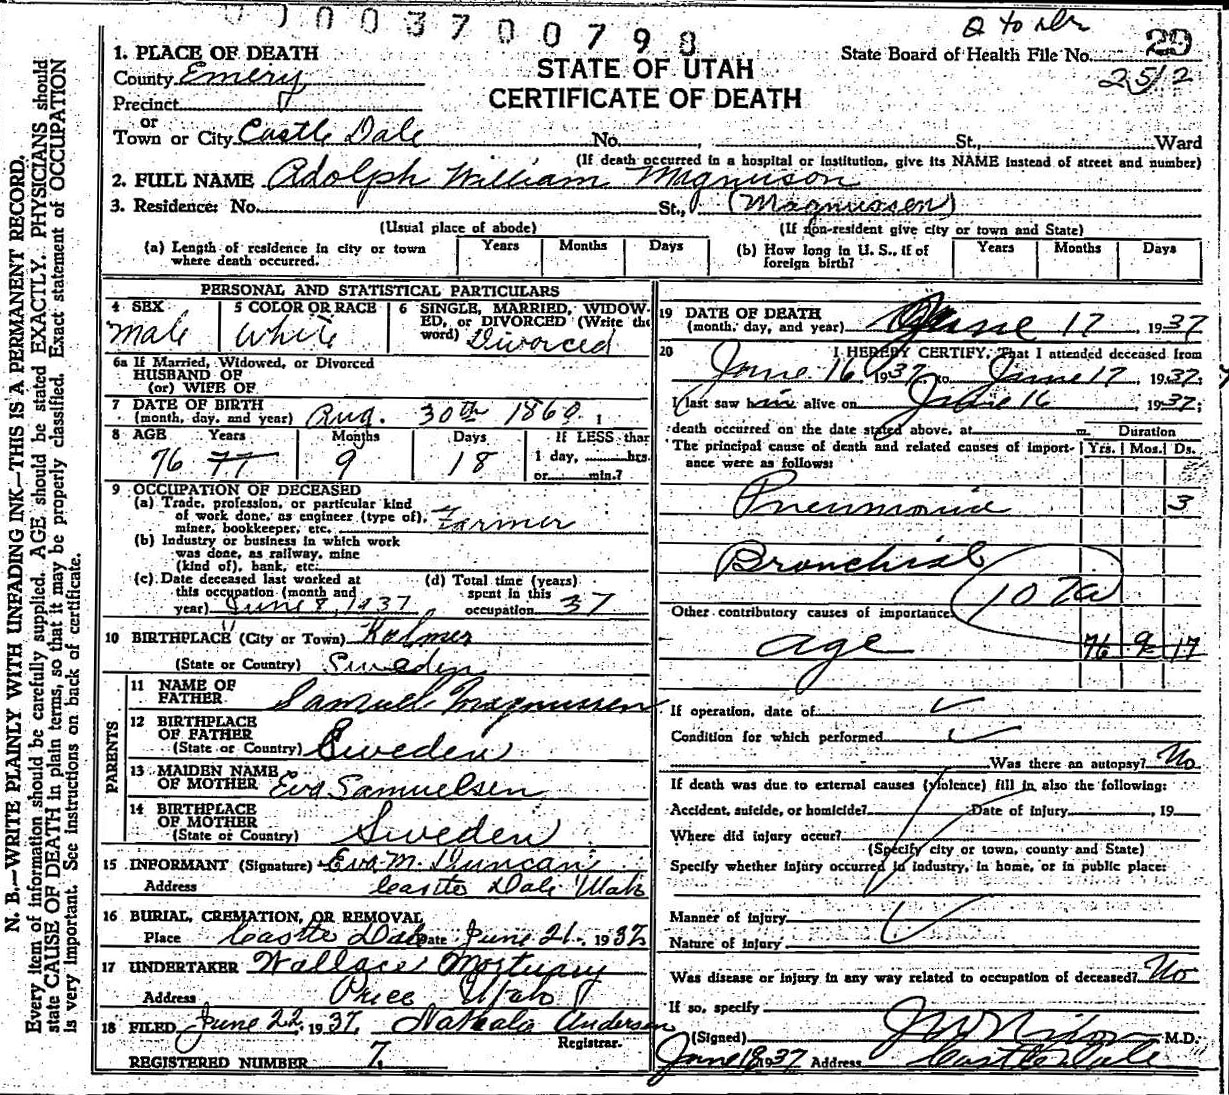 0003700798
Q to Dr
1. PLACE OF DEATH
County Emery
Precinct
or
Town or City Castle Dale No. , St., Ward
STATE OF UTAH
CERTIFICATE OF DEATH
State Board of Health File No. 29
2512
(If death occurred in a hospital or institution, give its NAME instead of street and number)
2. FULL NAME Adolph William Magnuson
3. Residence: No. St., (Magnussen)
(Usual place of abode) (If non-resident give city or town and State)
(a) Length of residence in city or town where death occurred. Years Months Days
(b) How long in U. S., if of foreign birth? Years Months Days
PERSONAL AND STATISTICAL PARTICULARS
4 SEX Male
5 COLOR OR RACE White
6 SINGLE, MARRIED, WIDOWED, or DIVORCED (Write the word) Divorced
6a If Married, Widowed, or Divorced
HUSBAND OF
(or) WIFE OF
7 DATE OF BIRTH
(month, day, and year) Aug. 30th 1860
8 AGE Years Months Days If LESS than
76 77 9 18 1 day, hrs.
or min.?
9 OCCUPATION OF DECEASED
(a) Trade, profession, or particular kind
of work done, as engineer (type of),
miner, bookkeeper, etc. Farmer
(b) Industry or business in which work
was done, as railway, mine
(kind of), bank, etc.
(c) Date deceased last worked at
this occupation (month and
year) June 8, 1937
(d) Total time (years)
spent in this
occupation 37
10 BIRTHPLACE (City or Town) Kalmer
(State or Country) Sweden
PARENTS
11 NAME OF
FATHER Samuel Magnussen
12 BIRTHPLACE
OF FATHER
(State or Country) Sweden
13 MAIDEN NAME
OF MOTHER Eva Samuelsen
14 BIRTHPLACE
OF MOTHER
(State or Country) Sweden
15 INFORMANT (Signature) Eva M. Duncan
Address Castle Dale Utah
16 BURIAL, CREMATION, OR REMOVAL
Place Castle Dale Date June 21, 1937
17 UNDERTAKER Wallace Mortuary
Address Price Utah
18 FILED June 22, 1937 Anderson
Registrar.
REGISTERED NUMBER 7.
19 DATE OF DEATH
(month, day, and year) June 17, 1937
20 I HEREBY CERTIFY, That I attended deceased from
June 16, 1937 to June 17, 1937;
I last saw him alive on June 16, 1937;
death occurred on the date stated above, at m. Duration
The principal cause of death and related causes of importance were as follows: Yrs. Mos. Ds.
Pneumonia 3
Bronchial
107a
Other contributory causes of importance:
age 76 9 17
If operation, date of
Condition for which performed
Was there an autopsy? No
If death was due to external causes (violence) fill in also the following:
Accident, suicide, or homicide? Date of injury , 19
Where did injury occur?
(Specify city or town, county and State)
Specify whether injury occurred in industry, in home, or in public place:
Manner of injury
Nature of injury
Was disease or injury in any way related to occupation of deceased? No
If so, specify
(Signed) M.D.
June 18 1937 Address Castle Dale
N. B.—WRITE PLAINLY WITH UNFADING INK—THIS IS A PERMANENT RECORD.
Every item of information should be carefully supplied. AGE should be stated EXACTLY. PHYSICIANS should
state CAUSE OF DEATH in plain terms, so that it may be properly classified. Exact statement of OCCUPATION
is very important. See instructions on back of certificate.